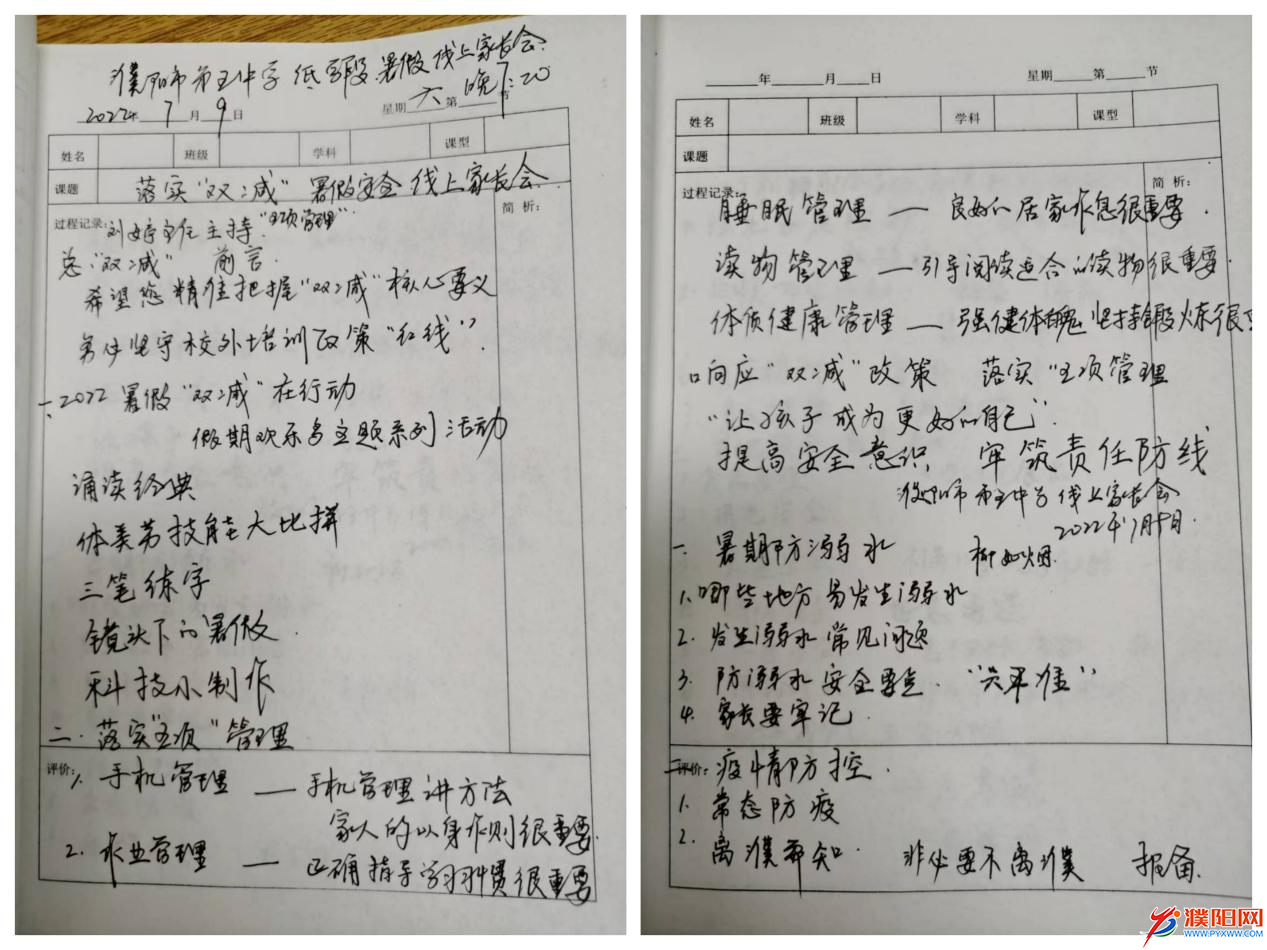 濮阳市第五中学 低年段 暑假 线上家长会
2022年 7 月 9 日 星期 六 第 节 晚7:20
姓名 班级 学科 课型
课题 落实"双减" 暑假安全 线上家长会
过程记录: 主任主持 "五项管理" 简析:
"双减" 前言
希望您 精准把握"双减"核心要义
务必坚守校外培训政策"红线"
一、2022 暑假"双减"在行动
假期欢乐多主题系列活动
诵读经典
体美劳技能大比拼
三笔练字
镜头下的暑假
科技小制作
二、落实"五项"管理
评价: 1. 手机管理 — 手机管理讲方法
家人的以身作则很重要
2. 作业管理 — 正确指导学习习惯很重要
年 月 日 星期 第 节
姓名 班级 学科 课型
课题
过程记录: 简析:
睡眠管理 — 良好的居家作息很重要.
读物管理 — 引导阅读适合的读物很重要.
体质健康管理 — 强健体魄 坚持锻炼很
响应"双减"政策 落实"五项管理
"让孩子成为更好的自己"
提高安全意识, 牢筑责任防线
濮阳市第五中学线上家长会
2022年7月9日.
一、暑期防溺水 柳如烟
1. 哪些地方易发生溺水
2. 发生溺水常见问题
3. 防溺水安全要点. "六不准"
4. 家长要牢记.
评价: 二、疫情防控.
1. 常态防疫
2. 离濮 知. 非必要不离濮 报备.
濮阳网
WWW.PYXWW.COM